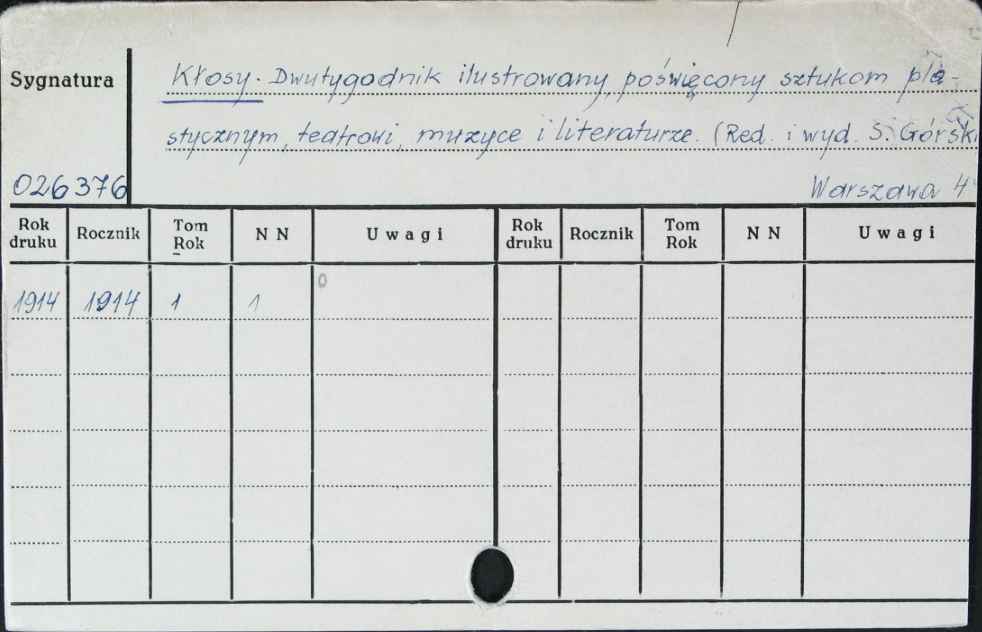 Sygnatura
Kłosy. Dwutygodnik ilustrowany, poświęcony sztukom pla-
stycznym, teatrowi, muzyce i literaturze. (Red. i wyd. S. Górski
026376
Warszawa 4°
Rok druku Rocznik Tom Rok N N Uwagi Rok druku Rocznik Tom Rok N N Uwagi
1914 1914 1 1